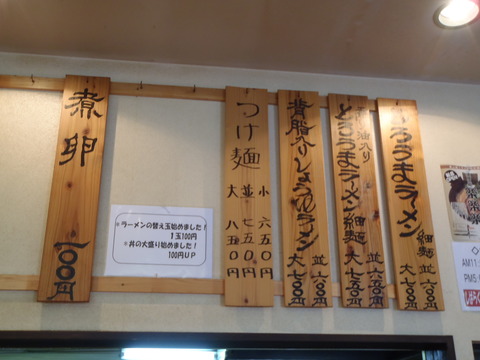 とろうまラーメン 細麺
並 六〇〇円
大 七〇〇円
油入り
とろうまラーメン 細麺
並 六五〇円
大 七五〇円
背脂入りしょうゆラーメン
並 六〇〇円
大 七〇〇円
つけ麺
小 六五〇円
並 七五〇円
大 八五〇円
※ラーメンの替え玉始めました!
1玉100円
※丼の大盛り始めました!
100円UP
煮卵
一〇〇円
AM11:
PM5: